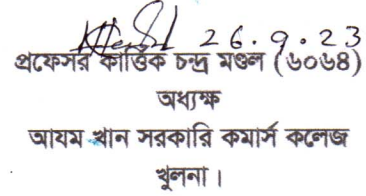 26.9.23
প্রফেসর কার্ত্তিক চন্দ্র মণ্ডল (৬০৬৪)
অধ্যক্ষ
আযম খান সরকারি কমার্স কলেজ
খুলনা।